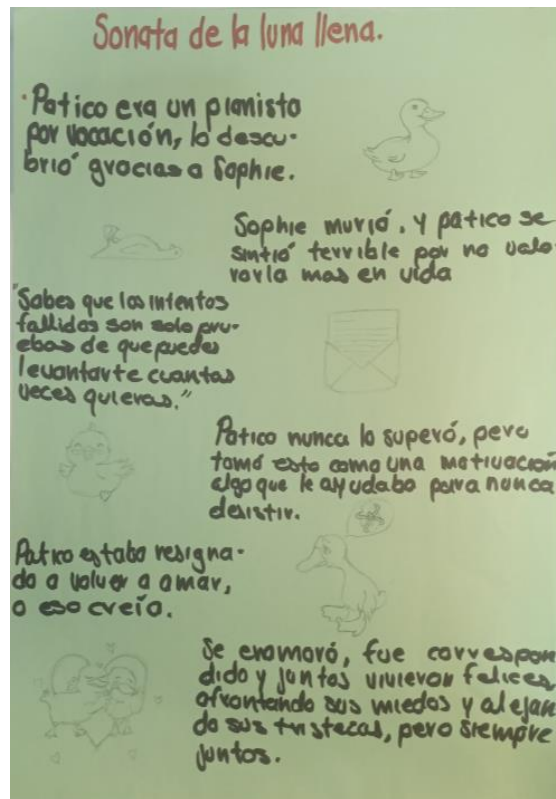 Sonata de la luna llena.
Patico era un pianista
por vocación, lo descu-
brió gracias a Sophie.
Sophie murió, y patico se
sintió terrible por no valo
rarla mas en vida
"Sabes que los intentos
fallidos son solo pru-
ebas de que puedes
levantarte cuantas
veces quieras."
Patico nunca lo superó, pero
tomó esto como una motivación
algo que le ayudaba para nunca
desistir.
Patico estaba resigna-
do a volver a amar,
o eso creía.
Se enamoró, fue correspon
dido y juntos vivieron felices
afrontando sus miedos y alejan
do sus tristezas, pero siempre
juntos.